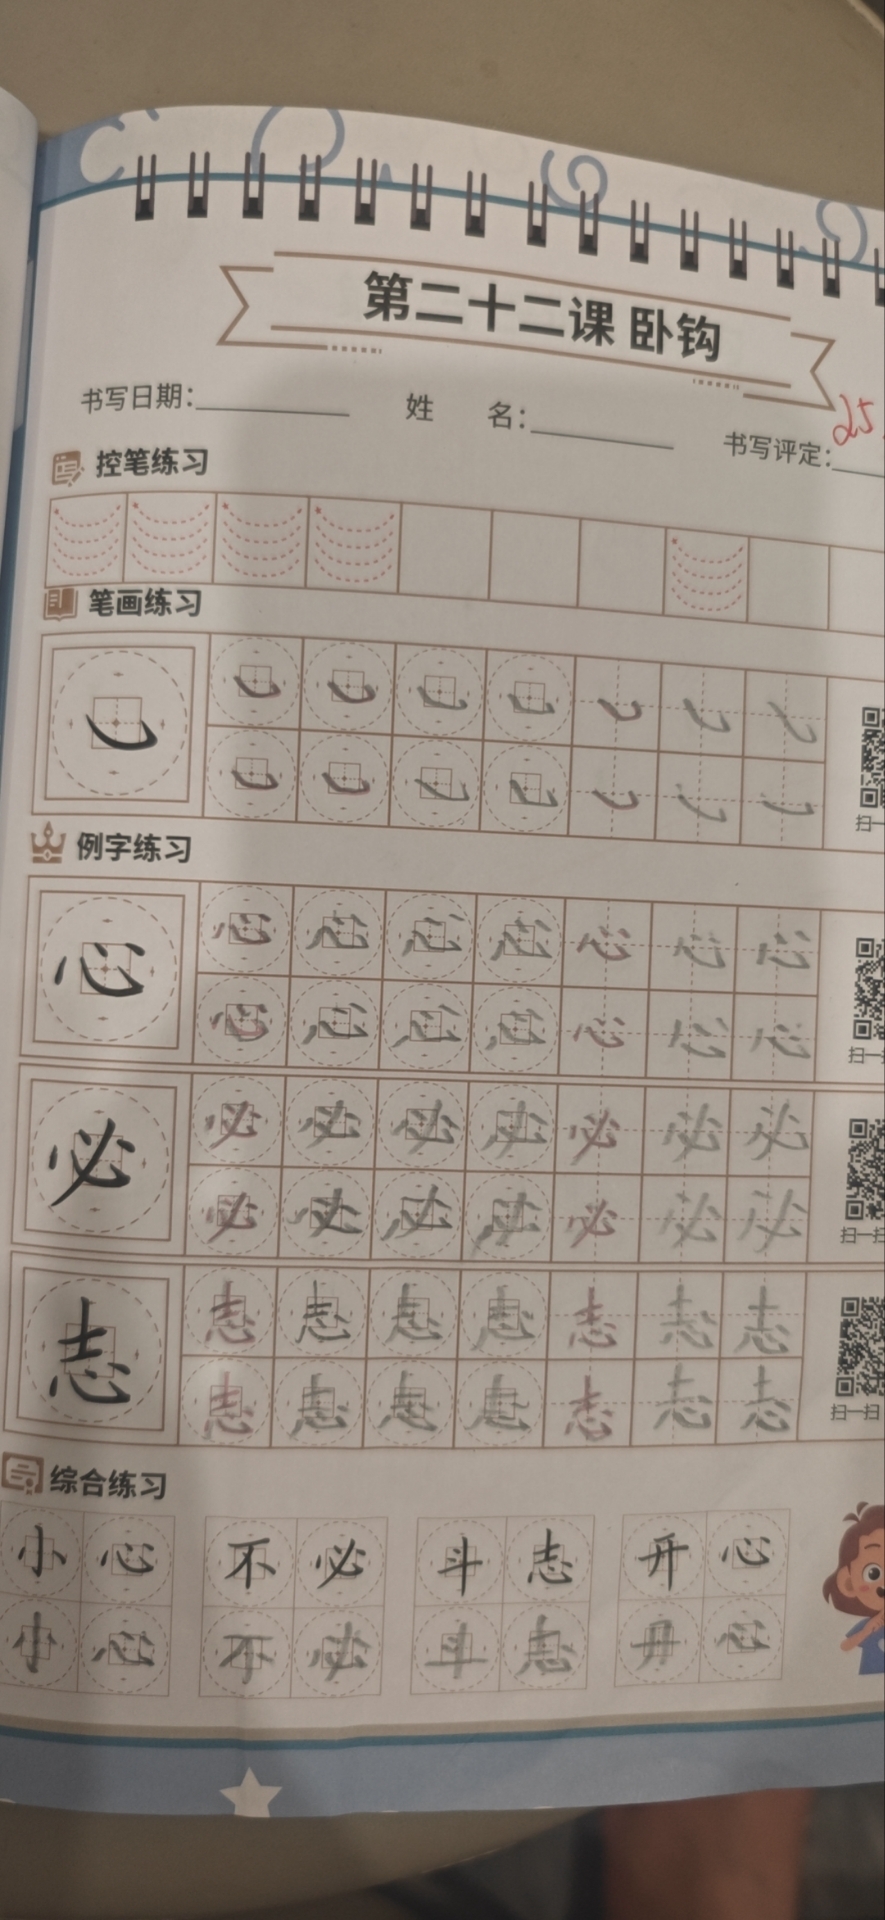 第二十二课 卧钩
书写日期： 姓 名： 书写评定：
25
控笔练习
笔画练习
扫一
例字练习
心 心 心 心 心 心 心 心
心 心 心 心 心 心 心
扫一扫
必 必 必 必 必 必 必 必
必 必 必 必 必 必 必
扫一扫
志 志 志 志 志 志 志 志
志 志 志 志 志 志 志
扫一扫
综合练习
小心 不必 斗志 开心
小心 不必 斗志 开心